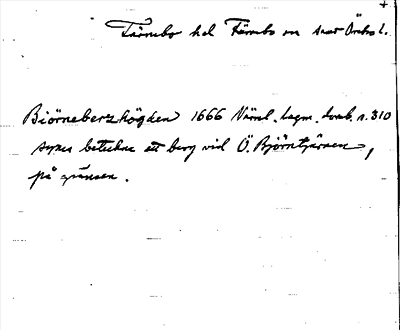 +
Färnebo hd Färnebo sn samt Örebro l.
Biörneberzhögden 1666 Värml. lagm. domb. n. 310
synes beteckna ett berg vid Ö. Björntjärnen,
på gränsen.